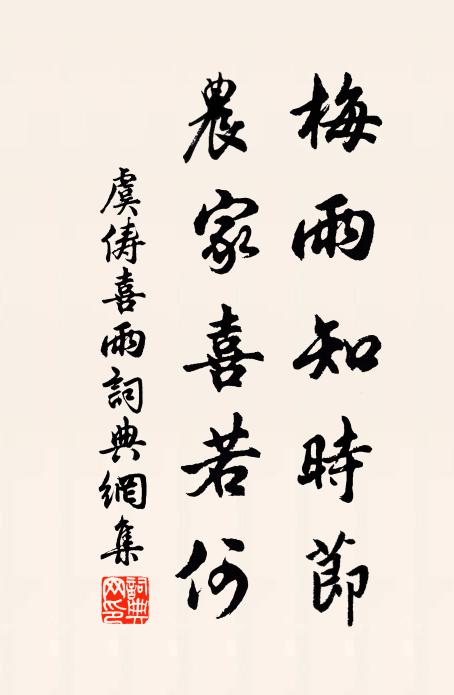 梅雨知時節
農家喜若何
虞儔喜雨詞典網集
詞典网印